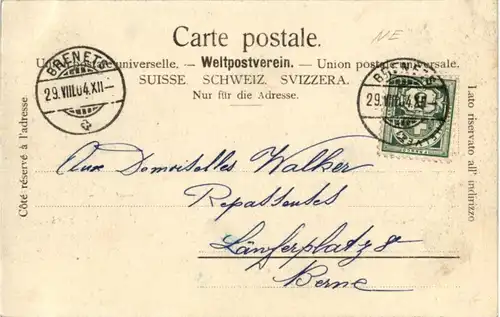 NE
Carte postale.
Union postale universelle. — Weltpostverein. — Union postale universale.
SUISSE. SCHWEIZ. SVIZZERA.
Nur für die Adresse.
BRENETS
29.VIII.04.XII-
BRENETS
29.VIII.04.XII
Côté réservé à l'adresse
Lato riservato all' indirizzo
Aux Demoiselles Walker
Repasseuses
Länferplatz 8
Berne